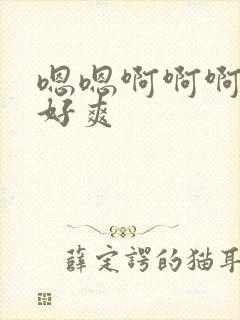 嗯嗯啊啊啊
好爽
薛定谔的猫耳